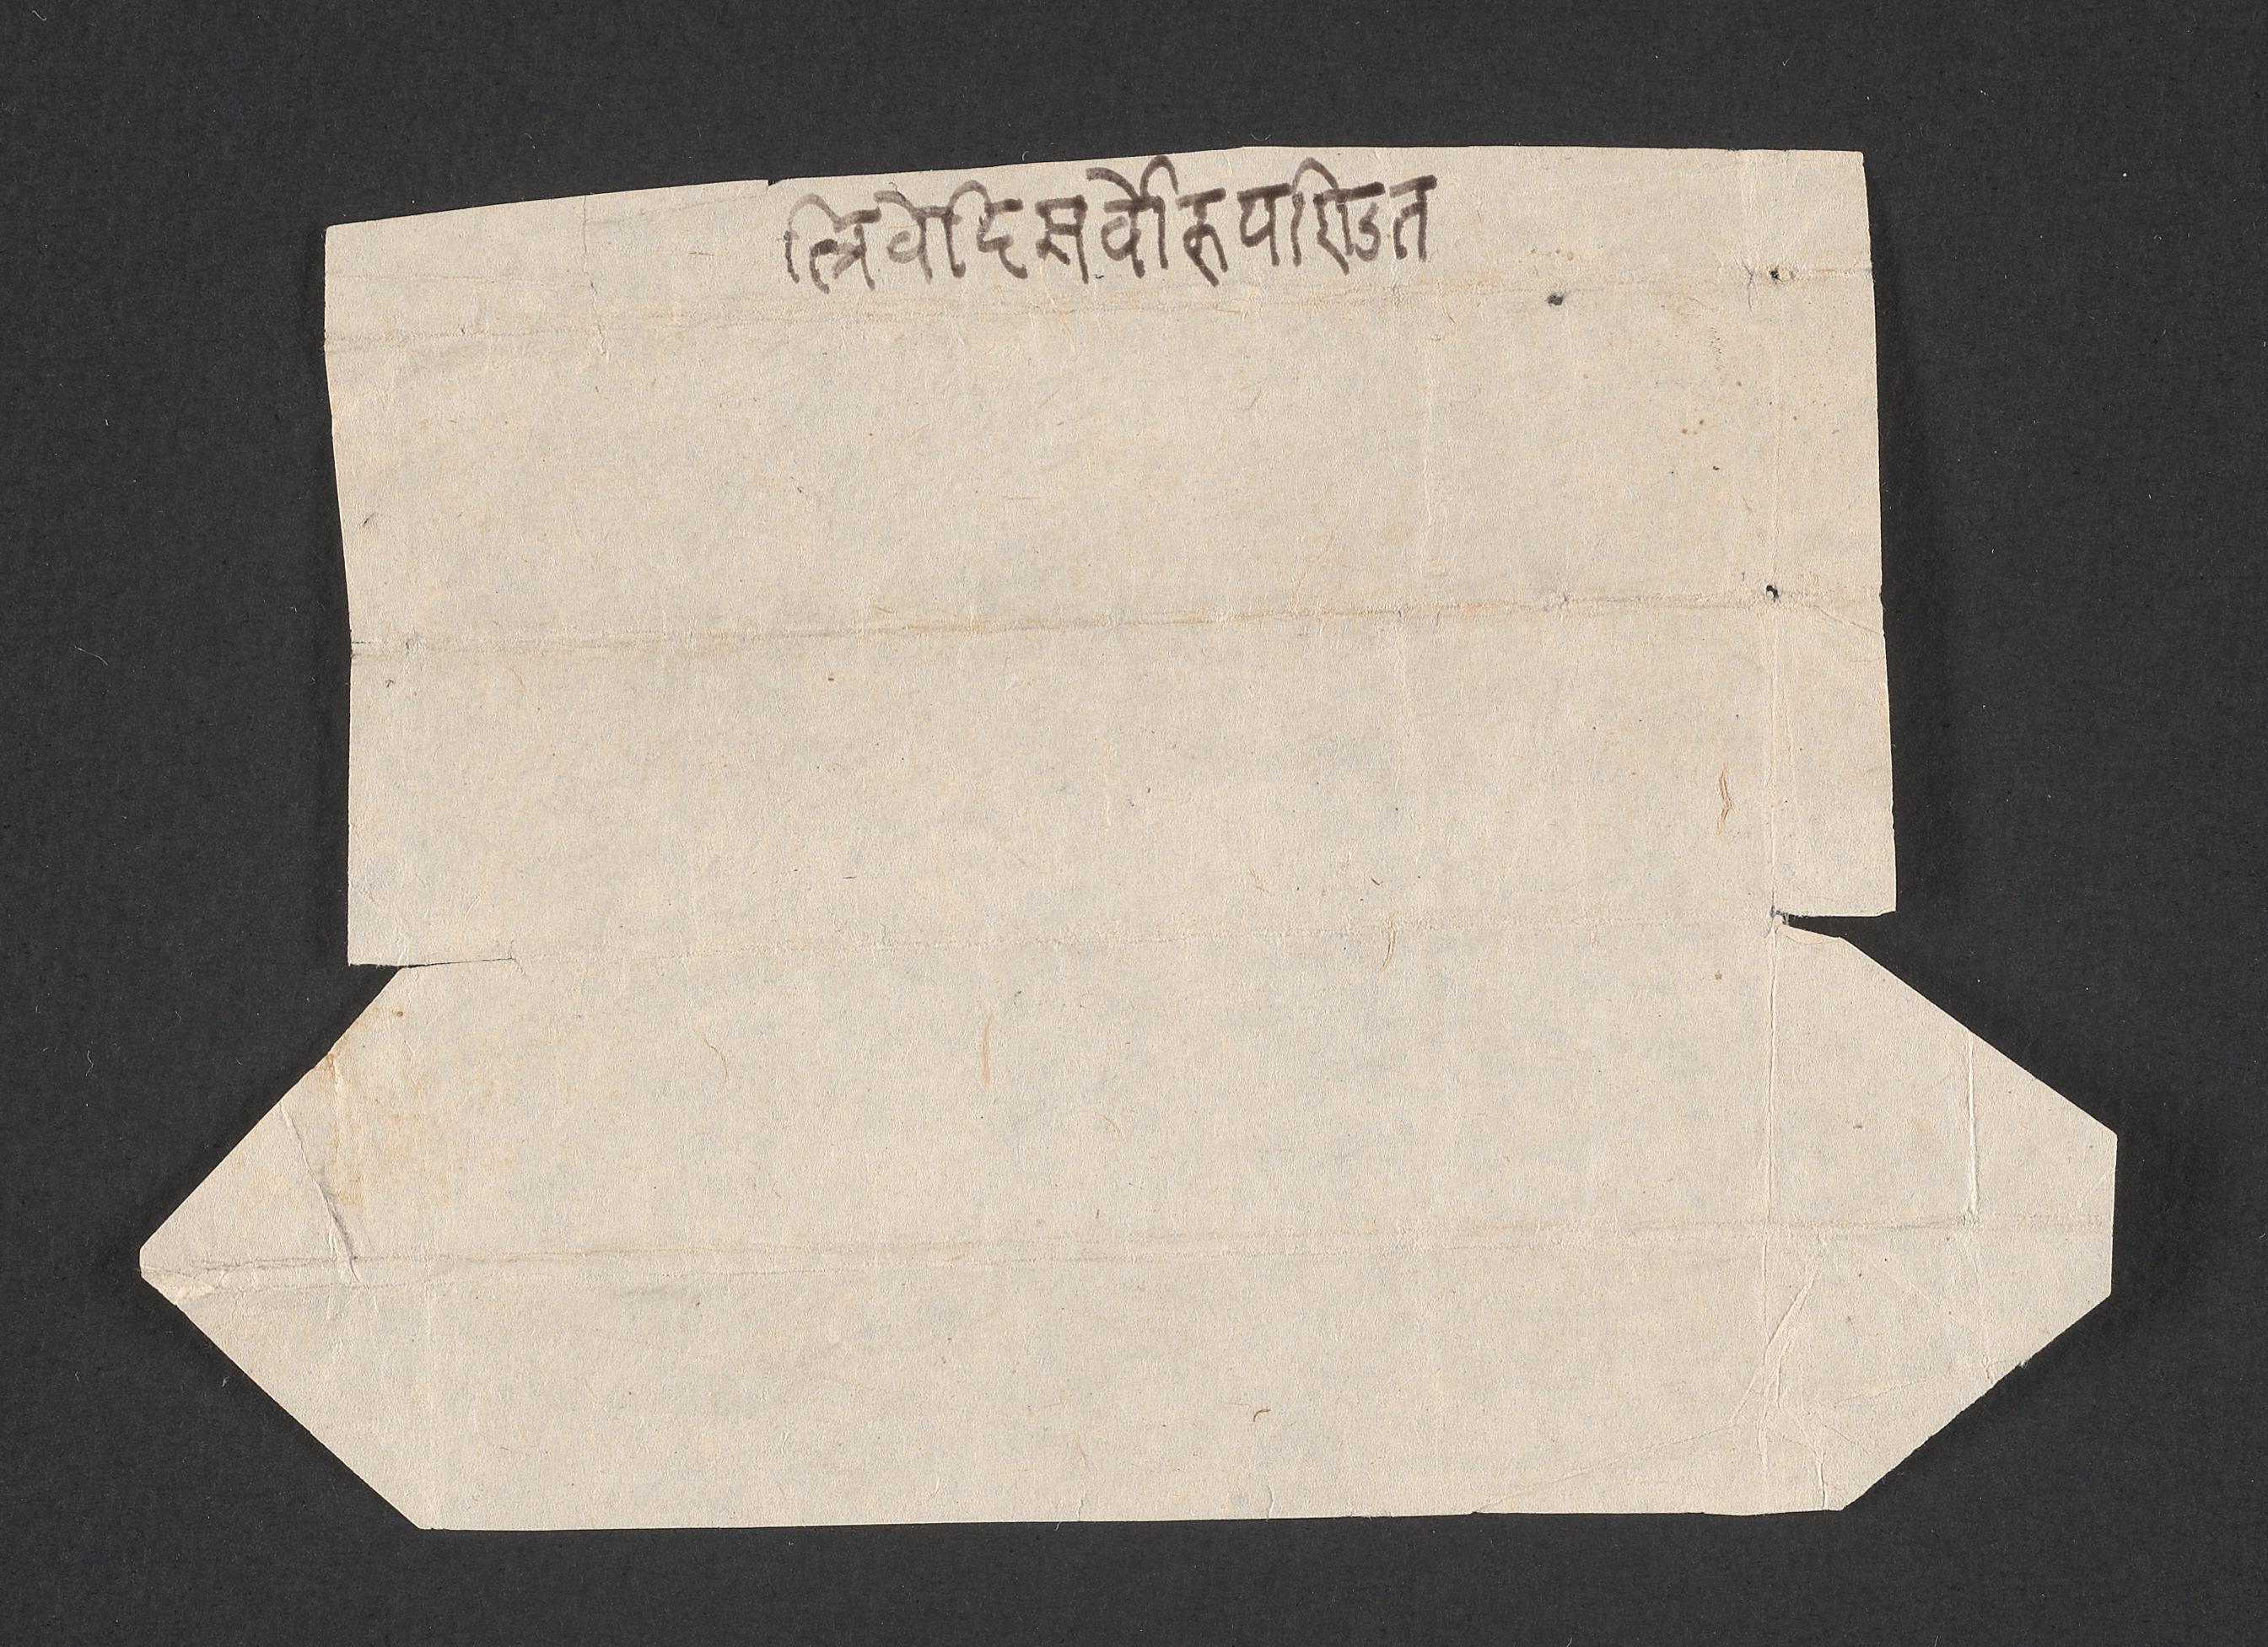 त्रिवेदिसर्वोरुपण्डित